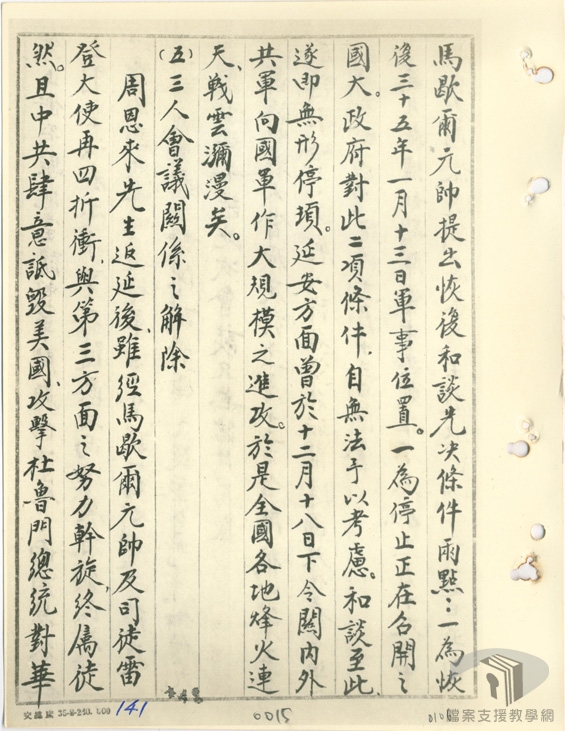 馬歇爾元帥提出恢復和談先決條件兩點:一為恢
復三十五年一月十三日軍事位置。一為停止正在召開之
國大。政府對此二項條件,自無法予以考慮。和談至此,
遂即無形停頓。延安方面曾於十二月十八日下令關內外
共軍向國軍作大規模之進攻。於是全國各地烽火連
天、戰雲瀰漫矣。
(五)三人會議關係之解除
周恩來先生返延後,雖經馬歇爾元帥及司徒雷
登大使再四折衝,與第三方面之努力斡旋,終屬徒
然。且中共肆意詆毀美國、攻擊杜魯門總統對華
141
0015
檔案支援教學網